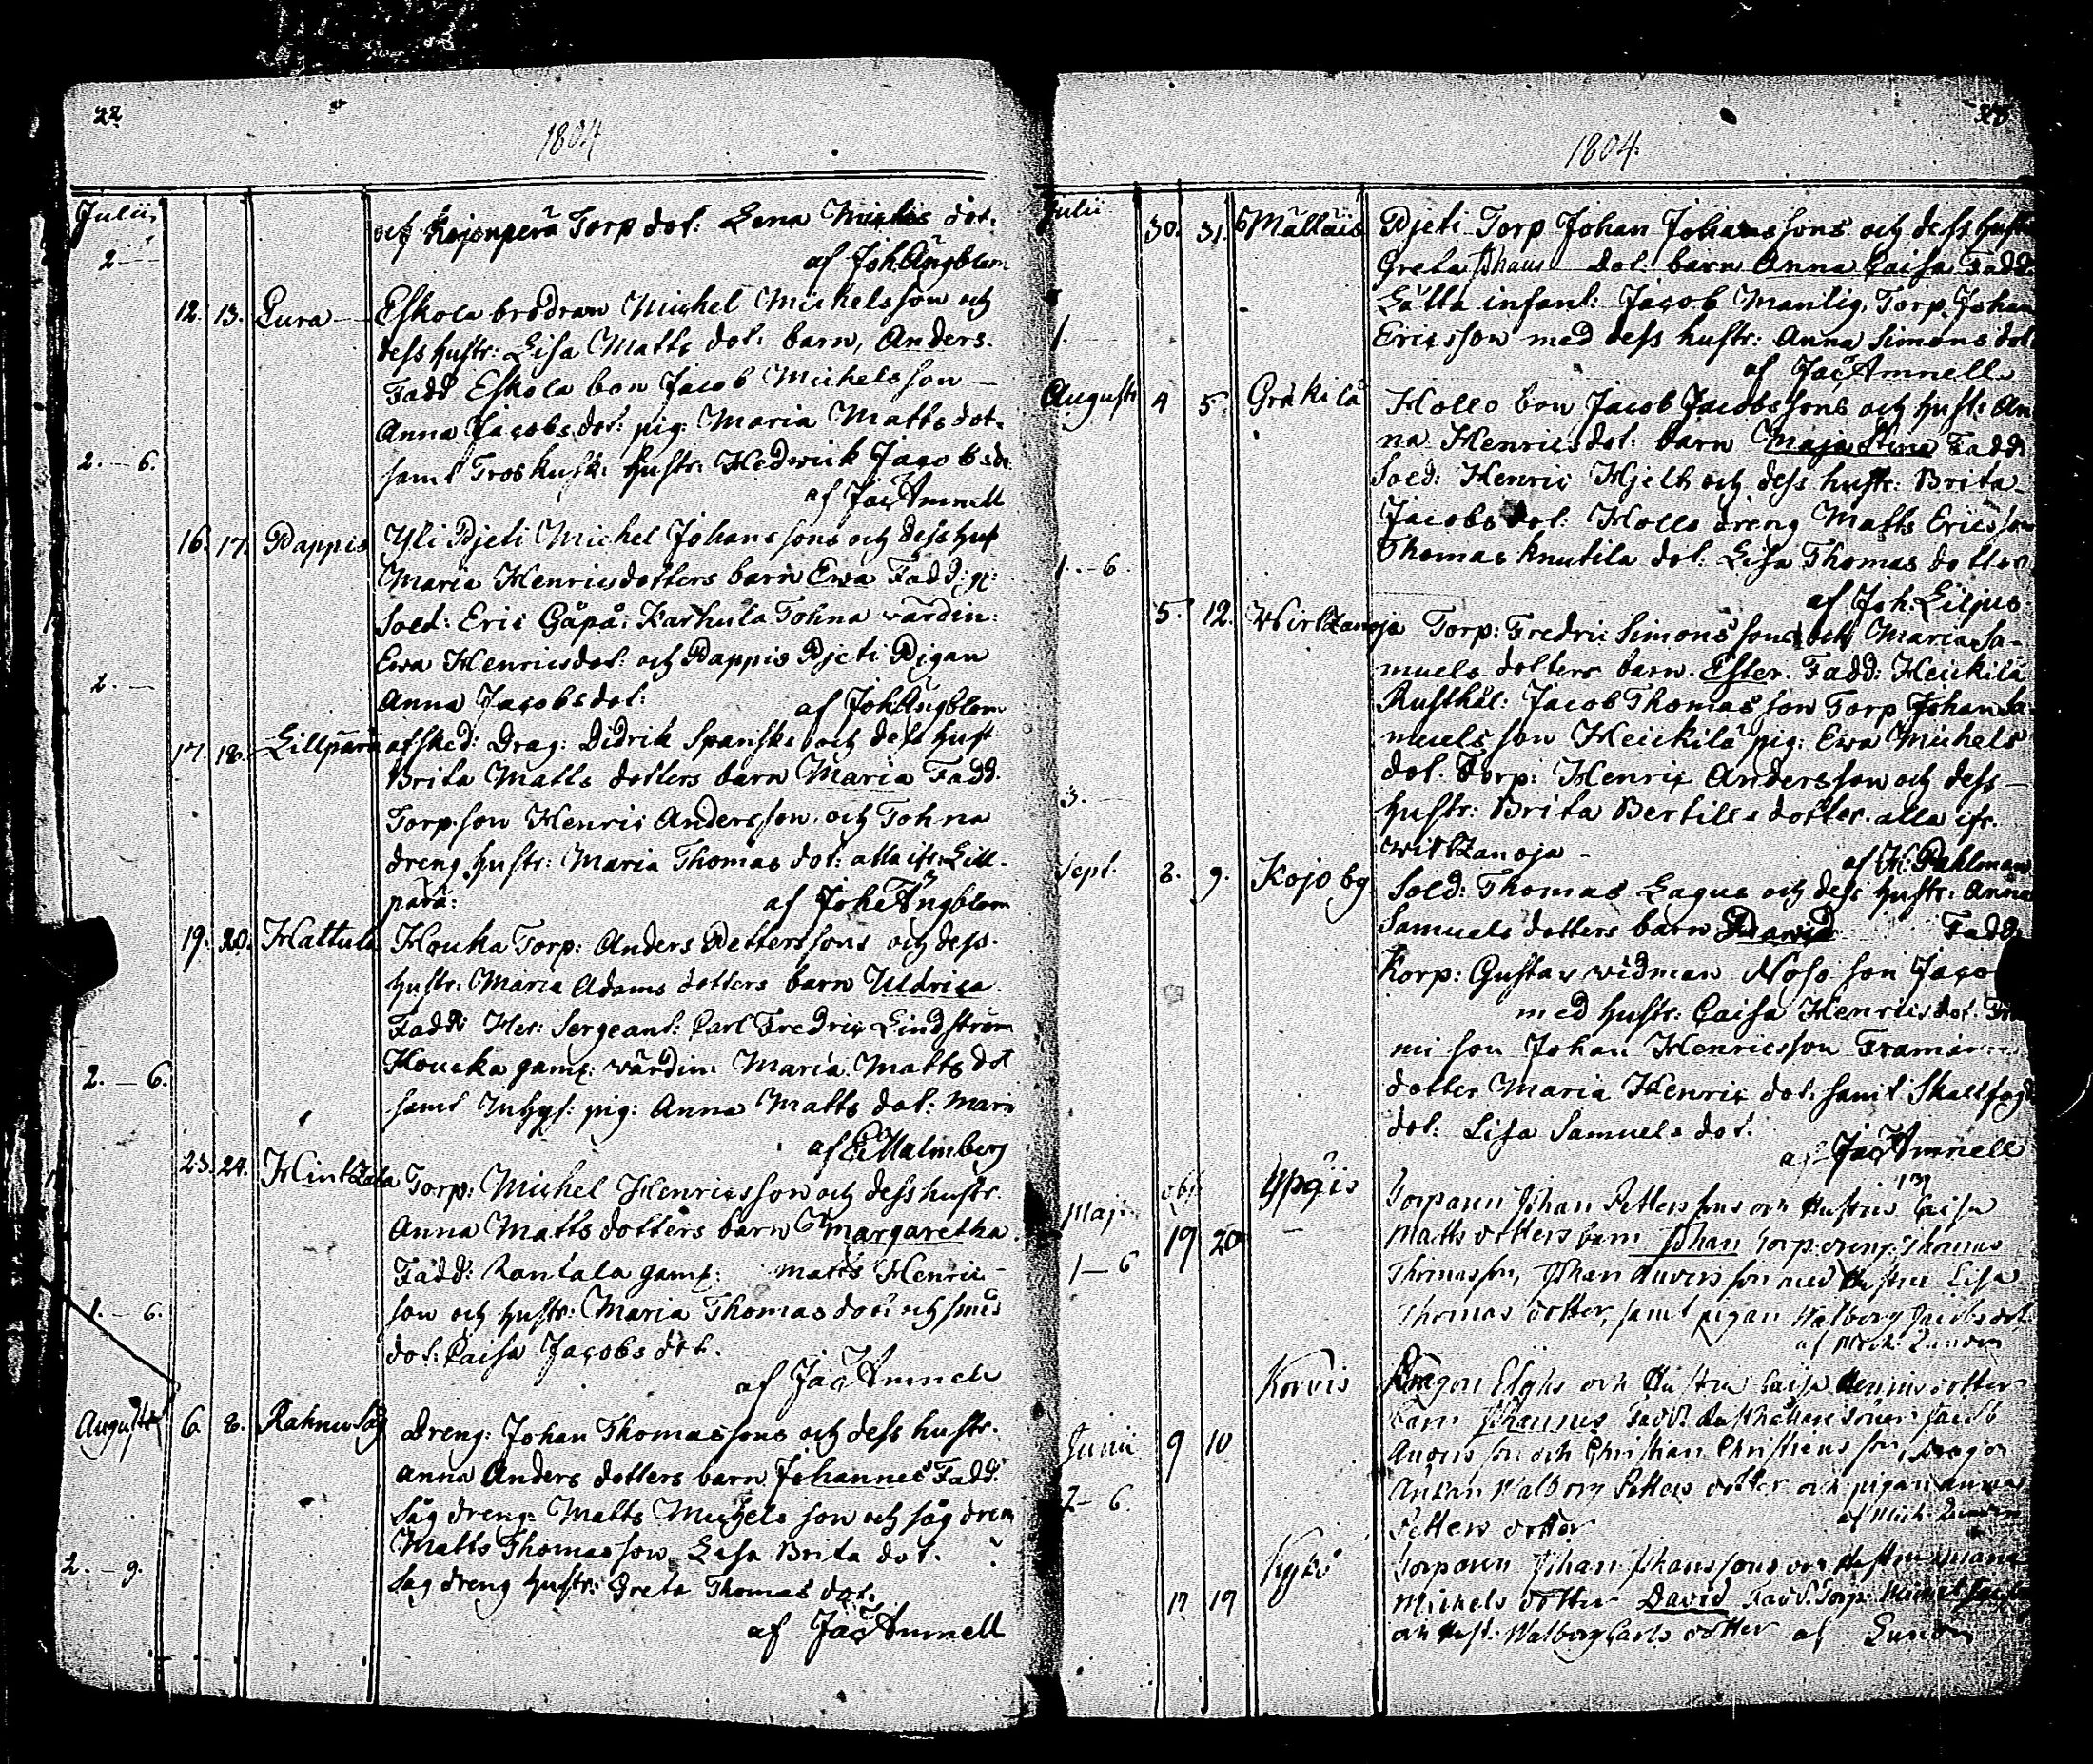 22
1804
Julii
och Kojonperä Torp dot: Lena Michs dot:
2 —
af Joh: Ängblom
12. 13. Lura — Eskola brodren Michel Michelsson och
dess hustr: Lisa Matts dot: barn, Anders.
Fadd Eskola bon Jacob Michelsson —
Anna Jacobs dot: pig: Maria Matts dot.
2. — 6.
samt Troskusk: hustr: Hedwick Jacobsd:
af Jac Amnell
16. 17. Pappis Yli Pjeti Michel Johanssons och dess hust
Maria Henricsdotters barn Ewa Fadd:
Sold: Eric Gåpå: Karhula Tohna wärdin:
Ewa Henricsdot: och Pappis Pjeti Pigan
2. —
Anna Jacobsdot:
af Joh Ängblom
17. 18. Lillperä afsked: Drag: Didrik Spansk: och dess hust
Brita Matts dotters barn Maria Fadd.
Torp.son Henric Andersson och Tohna
dreng hustr: Maria Thomas dot: alla ifr: Lill-
perä:
af Joh: Ängblom
19. 20. Hattula Houka Torp: Anders Petterssons och dess
hustr: Maria Adams dotters barn Uldrica.
Fadd: Her: Sergeant: Carl Fredric Lindström
Houcka gaml: wärdin: Maria Matts dot
2. — 6.
samt Inhys: pig: Anna Matts dot: Mari
af E: Malmberg
23. 24. Hintzala Torp: Michel Henricsson och dess hustr.
Anna Matts dotters barn Margaretha.
Fadd: Rantala gaml: Matts Henric-
son och hustr: Maria Thomas dot: och
1. — 6.
dot: Caisa Jacobs dot.
af Jac Amnell
Augusti 6. 8. Rahnu Såg Dreng: Johan Thomassons och dess hustr.
Anna Anders dotters barn Johannes Fadd:
Såg dreng: Matts Michels son och såg dren
Matts Thomasson Lisa Brita dot.
2. — 9.
Såg dreng hustr: Greta Thomas dot.
af Jac Amnell
1804.
Julii
30. 31. Mällais Pjeti Torp Johan Johanssons och dess hustr
Greta Johans dot: barn Anna Caisa Fadd:
Lätta infant: Jacob Mantig, Torp. Johan
1. —
Ericsson med dess hustr: Anna Simons dot
af Jac Amnell
Augusti 4 5. Gräkilä Hollo bon Jacob Jacobssons och hust: An
na Henricsdot. barn Maja Stina Fadd:
Sold: Henric Hjelt och dess hustr: Brita
Jacobs dot: Hollo dreng Matts Ericsson
1. — 6.
Thomas Knutila dot: Lisa Thomas dotter
af Joh: Liljus
5. 12. Wirtzanoja Torp: Fredric Simonssons och Maria Sa-
muels dotters barn. Ester. Fadd: Heickilä
Rusthål: Jacob Thomas son Torp Johan Sa-
muelsson Heickilä pig: Ewa Michels
dot. Torp: Henric Andersson och dess —
3. —
hustr: Brita Bertills dotter. alla ifr.
wirtzanoja —
af H: Pahlman
Sept. 8. 9. Kojo by. Sold: Thomas Lagus och dess hustr: Anna
Samuels dotters barn David Fadd
Korp: Gustav widman Noso son Jaco
med hustr: Caisa Henricsdot.
mi son Johan Henricsson
dotter Maria Henric dot: samt Skallfogd
dot. Lisa Samuels dot.
af Jac Amnell
Maji 19 20 Ypäis Torparen Johan Petterssons och Hustrus Caisa
Matts dotters barn Johan Torp: dreng: Thomas
1 — 6
Thomasson, Johan Andersson med Hustru Lisa
Thomas dotter, samt pigan Walborg Jacobs dot
af Mich: Lunden
Korvis Dragon Elghs och Hustru Caisa Henrics dotter
barn Johannes Fadd:
Junii 9 10
Anders son och Christian Christians son, Dragon
Enkan Walborg Petters dotter och pigan Anna
2 — 6.
Petters dotter
af Mich: Lunden
Kykö Torparen Johan Johanssons och Hustru Maria
17 19 Michels dotter David Fadd: Torp: Michel
och Hust. Walborg Carls dotter af Lunden